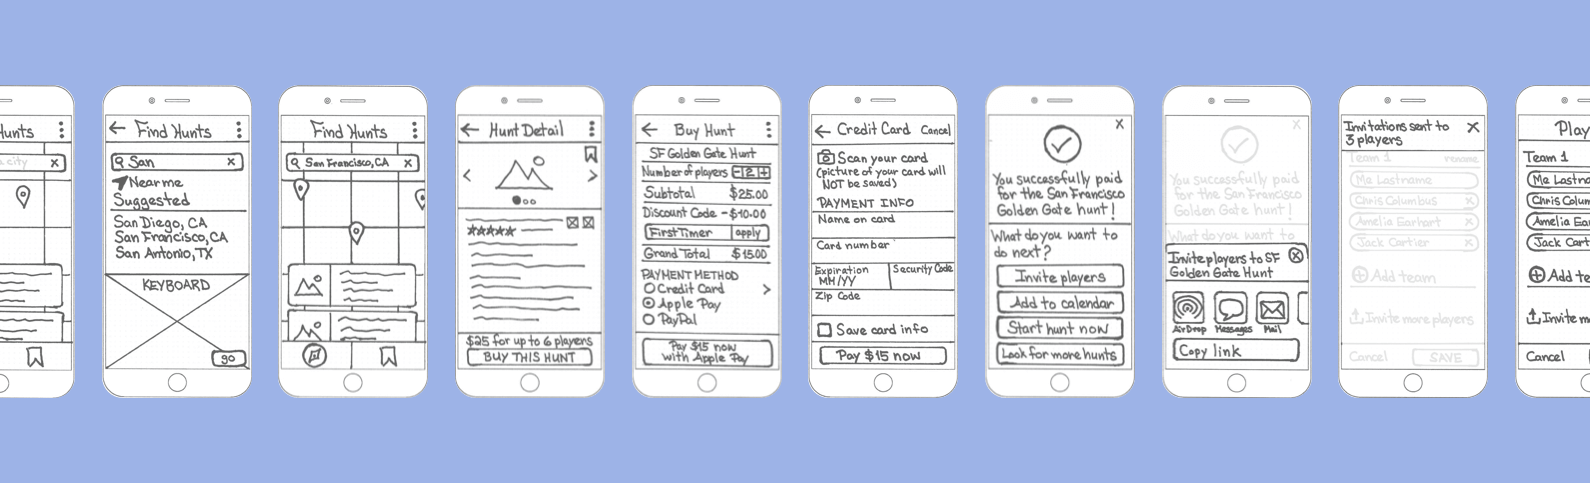 Hunts
a city X
Find Hunts
San X
Near me
Suggested
San Diego, CA
San Francisco, CA
San Antonio, TX
KEYBOARD
go
Find Hunts
San Francisco, CA X
Hunt Detail
$25 for up to 6 players
BUY THIS HUNT
Buy Hunt
SF Golden Gate Hunt
Number of players - 2 +
Subtotal $25.00
Discount Code -$10.00
First Timer apply
Grand Total $15.00
PAYMENT METHOD
Credit Card
Apple Pay
PayPal
Pay $15 now
with Apple Pay
Credit Card Cancel
Scan your card
(picture of your card will
NOT be saved)
PAYMENT INFO
Name on card
Card number
Expiration Security Code
MM/YY
Zip Code
Save card info
Pay $15 now
X
You successfully paid
for the San Francisco
Golden Gate hunt!
What do you want to
do next?
Invite players
Add to calendar
Start hunt now
Look for more hunts
X
You successfully paid
for the San Francisco
Golden Gate hunt!
What do you want to
Invite players to SF X
Golden Gate Hunt
AirDrop Messages Mail
Copy link
Invitations sent to X
3 players
Team 1 rename
Me Lastname
Chris Columbus X
Amelia Earhart X
Jack Cartier X
Add team
Invite more players
Cancel SAVE
Play
Team 1
Me Lastna
Chris Colum
Amelia Ea
Jack Cartie
Add te
Invite mo
Cancel